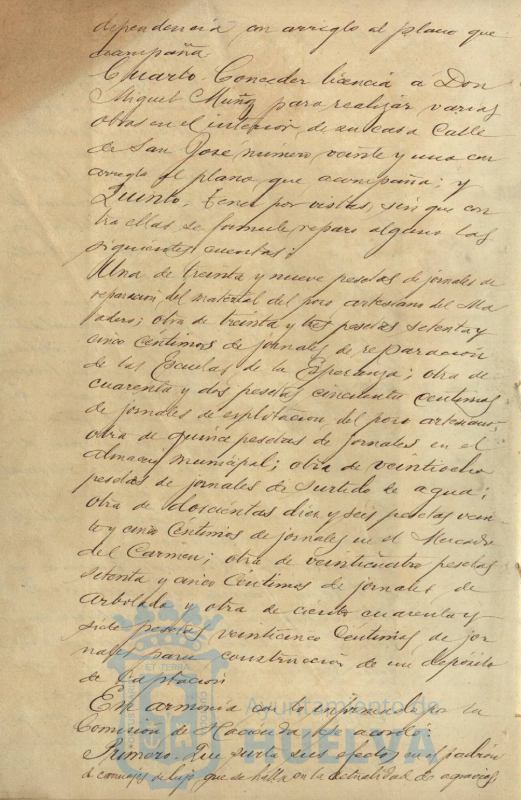 dependencia, con arreglo al plano que
acompaña.
Cuarto. Conceder licencia a Don
Miguel Muñoz para realizar varias
obras en el interior de su casa Calle
de San José número veinte y uno con
arreglo al plano que acompaña; y
Quinto. Tener por vistas, sin que con
tra ellas se formule reparo alguno las
siguientes cuentas:
Una de treinta y nueve pesetas de jornales de
reparación del material del pozo artesiano del Ma
tadero; otra de treinta y tres pesetas setenta y
cinco céntimos de jornales de reparación
de las Escuelas de la Esperanza; otra de
cuarenta y dos pesetas cincuenta céntimos
de jornales de explotación del pozo artesiano;
otra de quince pesetas de jornales en el
almacen municipal; otra de veintiocho
pesetas de jornales de surtido de agua;
otra de doscientas diez y seis pesetas vein
te y cinco céntimos de jornales en el Mercado
del Carmen; otra de veinticuatro pesetas
setenta y cinco céntimos de jornales de
arbolado y otra de ciento cuarenta y
siete pesetas veinticinco céntimos de jor
nales para construcción de un depósito
de captación.
En armonia con lo informado por la
Comisión de Hacienda se acordó:
Primero. Que surta sus efectos en el padrón
de carruajes de lujo que se halla en la actualidad de agravios,
ET TERRA
Ayuntamiento de
HUELVA